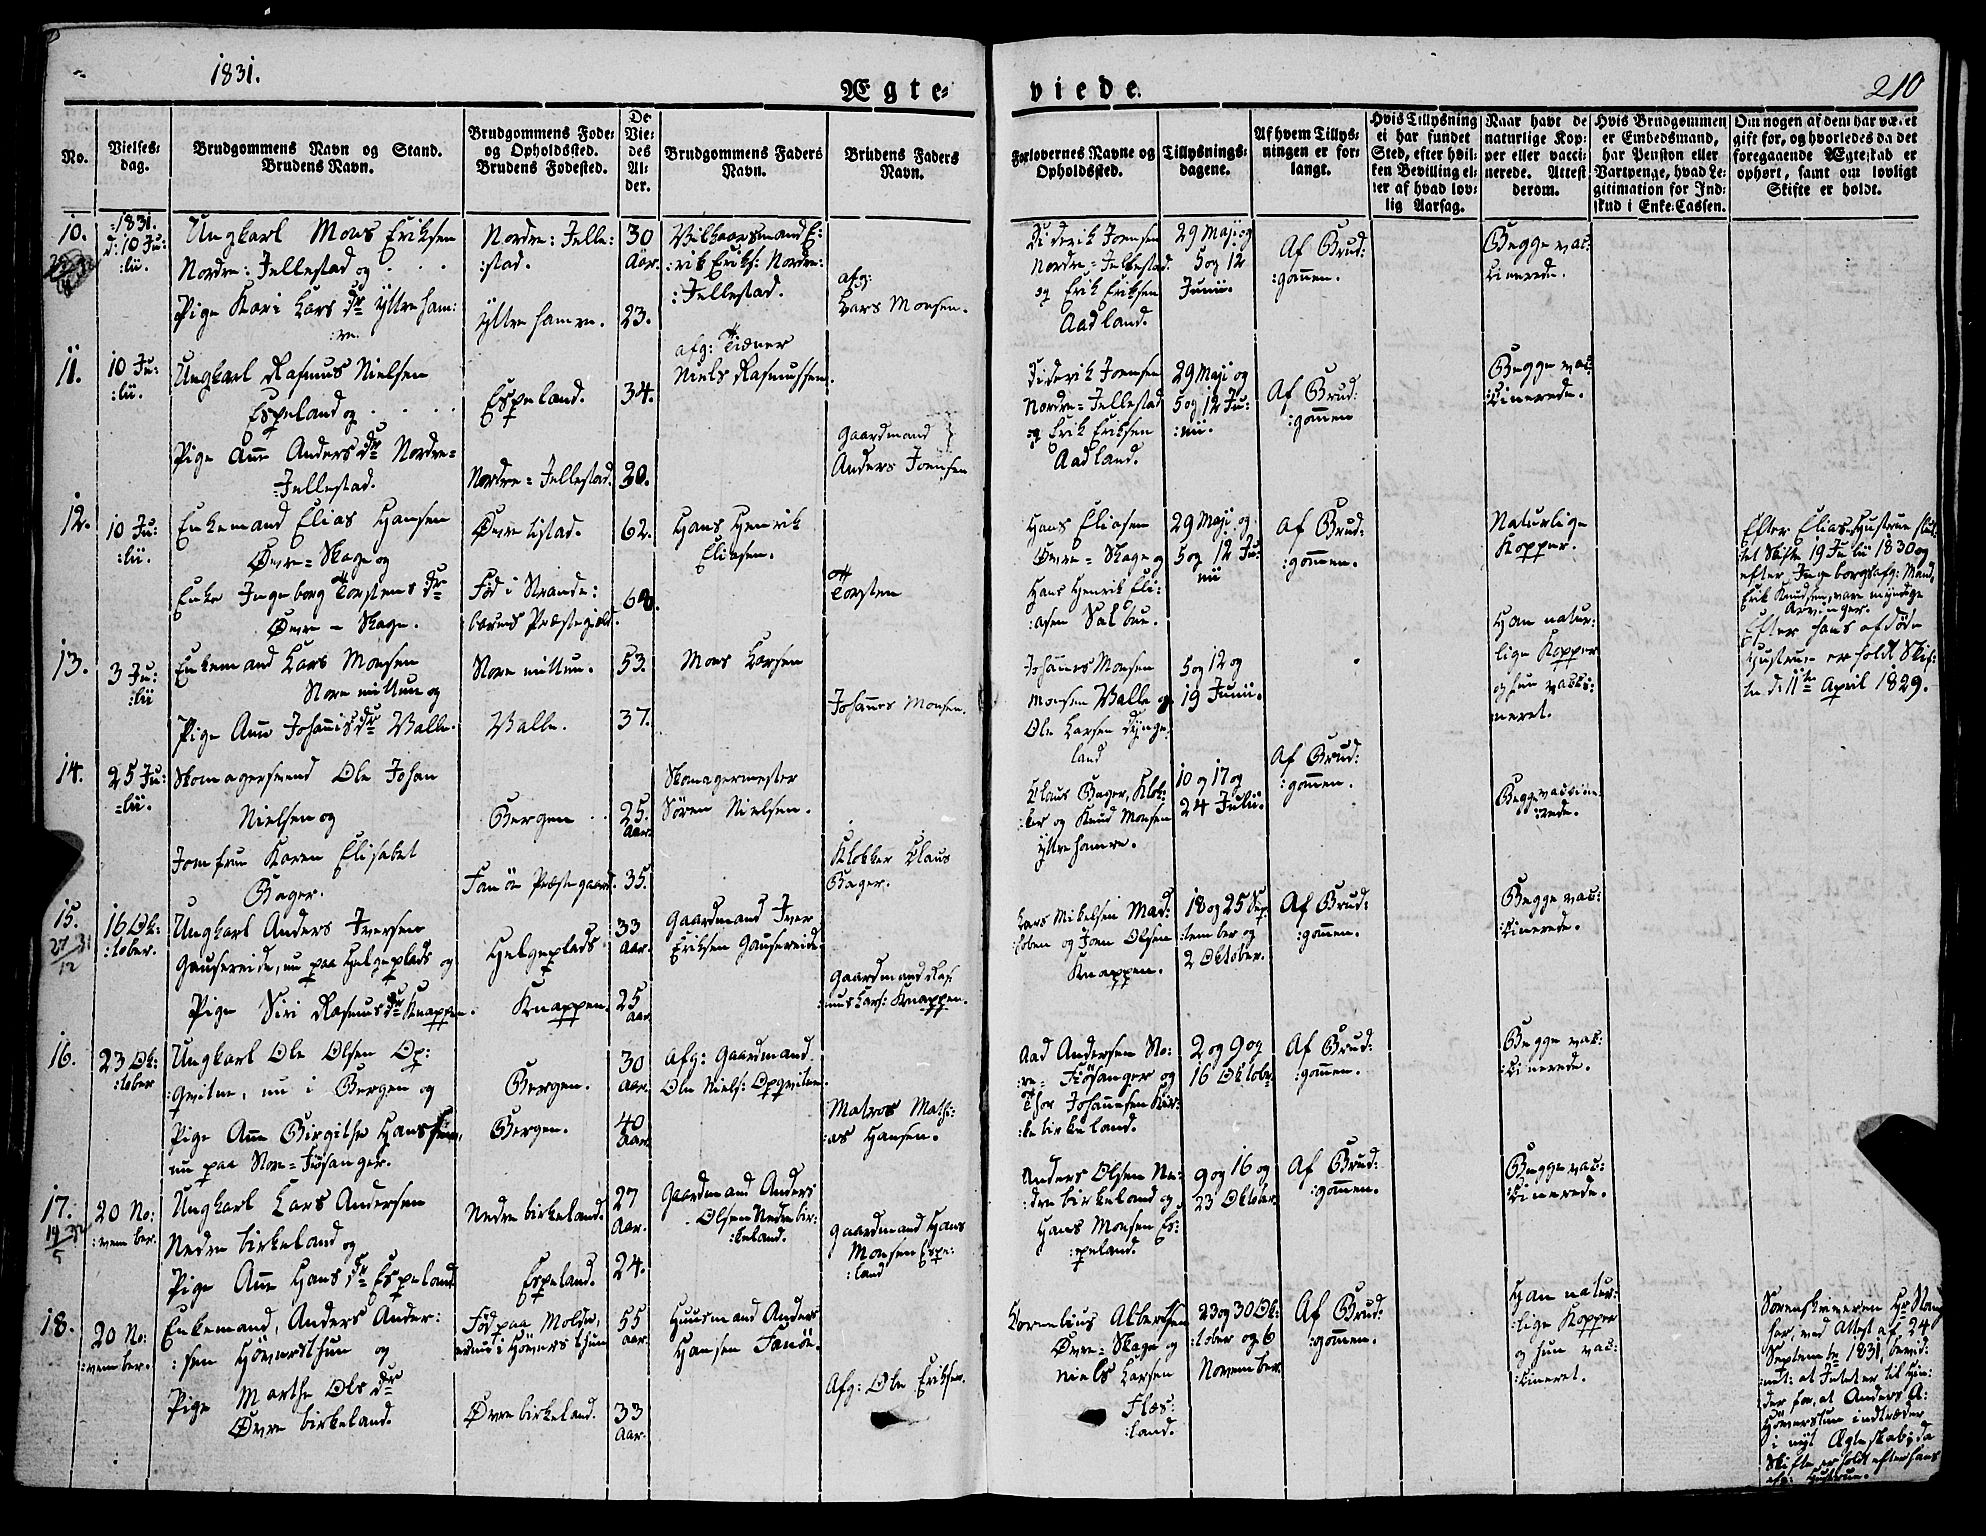 1831.
Ægte=
viede.
210
No.
Vielses-
dag.
Brudgommens Navn og Stand.
Brudens Navn.
Brudgommens Føde-
og Opholdssted.
Brudens Fødested.
De
Vie-
des
Al-
der.
Brudgommens Faders
Navn.
Brudens Faders
Navn.
Forlovernes Navne og
Opholdssted.
Tillysnings-
dagene.
Af hvem Tillys-
ningen er for-
langt.
Hvis Tillysning
ei har fundet
Sted, efter hvil-
ken Bevilling el-
ler af hvad lov-
lig Aarsag.
Naar havt de
naturlige Kop-
per eller vacci-
nerede. Attest
derom.
Hvis Brudgommen
er Embedsmand,
har Pension eller
Vartpenge, hvad Le-
gitimation for Ind-
skud i Enke-Cassen.
Om nogen af dem har været
gift før, og hvorledes da det
foregaaende Ægteskab er
ophørt, samt om lovligt
Skifte er holdt.
10.
1831.
d: 10 Ju:
:lii.
Ungkarl Mons Eriksen
Nordre: Jellestad og
Pige Kari Lars dr Yttre ham:
:re.
Nordre: Jelle:
:stad.
Yttre hamre.
30
Aar.
23.
Vilkaarsmand E:
:rik Eriks: Nordre:
:Jellestad.
afg:
Lars Monsen.
Diderik Joensen
Nordre = Jellestad
og Erik Eriksen
Aadland.
29 Maji og
5 og 12
Junii.
Af Brud:
:gomen.
Begge vac:
:cinerede.
11.
10 Ju:
:lii.
Ungkarl Rasmus Nielsen
Espeland og
Pige Ane Anders dr Nordre=
=Jellestad.
Espeland.
Nordre = Jellestad.
34.
30.
afg:
Niels Rasmussen.
Gaardmand
Anders Joensen
Diderik Joensen
Nordre = Jellestad
og Erik Eriksen
Aadland.
29 Maji og
5 og 12 Ju:
:nii.
Af Brud:
:gomen
Begge vac:
:cinerede.
12.
10 Ju:
:lii.
Enkemand Elias Hansen
Øvre = Skage og
Enke Ingeborg Torstens dr
Øvre = Skage.
Øvre tistad.
Fød i Strande:
barms Præstegield.
62.
Hans Henrik
Eliasen.
Torsten
Hans Eliasen
Øvre = Skage og
Hans Henrik Eli:
:asen Salbue.
29 Maji og
5 og 12 Ju:
nii
Af Brud:
:gomen.
Naturlige
Kopper.
Efter Elias Hustrue slut:
:tet Skifte 19 Julii 1830 og
efter Ingeborgs afg: Mand,
Erik Knudsen, vare myndige
Arvinger.
13.
3 Ju:
:lii
Enkemand Lars Monsen
Store milltun og
Pige Ane Johannis dr Valle.
Store milltun.
Valle.
53.
37.
Mons Larsen
Johannes Monsen.
Johannes Monsen
Monsen Valle og
Ole Larsen Dynge
land
5 og 12 og
19 Junii.
Han natur:
lige Kopper
og hun vacci:
neret.
Efter hans afdøde
Hustrue er holdt Skif:
te d: 11te April 1829.
14.
25 Ju:
=lii.
Skomagersvend Ole Johan
Nielsen og
Jomfrue Karen Elisabet
Bager.
Bergen
Fanöe Præstegaard.
25.
Aar.
35.
Skomagermester
Søren Nielsen.
Klokker Claus
Bager.
Claus Bager, Klok:
:ker og Knud Monsen
Yttre hamre.
10 og 17 og
24 Julii.
Af Brud:
:gomen.
Begge vaccine
:rede.
15.
16 Ok:
:tober.
Ungkarl Anders Iversen
Gausereide, nu paa Helgeplads og
Pige Siri Rasmus dr Knappen.
Helgeplads
Knappen.
33
Aar.
25
Aar.
Gaardmand Iver
Eriksen Gausereide.
Gaardmand Ras
:mus Lars: Knappen.
Lars Mikelsen Mad:
:loben og Joen Olsen
Knappen.
18 og 25 Sep
:tember og
2 Oktober.
Af Brud:
:gomen.
Begge vac:
:cinerede.
16.
23 Ok:
:tober
Ungkarl Ole Olsen Op:
:qvitne, nu i Bergen og
Pige Ane Birgithe Hans
nu paa Store = Fiøsanger.
Bergen.
Bergen.
30
Aar.
40
Aar.
Afg: Gaardmand
Ole Niels: Opqvitne.
Matros Mathi:
:as Hansen.
Aad Andersen Sto:
:re= Fiösanger og
Thor Johannesen Kir:
:ke birkeland.
2 og 9 og
16 Oktober
Af Brud:
:gomen.
Begge vac:
:cinerede.
17.
20 No:
:vember.
Ungkarl Lars Andersen
Nedre birkeland og
Pige Ane Hans dr Espeland
Nedre birkeland.
Espeland.
27
Aar.
24.
Gaardmand Anders
Olsen Nedre bir:
:keland.
Gaardmand Hans
Monsen Espe:
:land
Anders Olsen Ne:
:dre birkeland og
Hans Monsen Es:
:peland.
9 og 16 og
23 Oktober.
Af Brud:
:gomen.
Begge vac:
:cinerede.
18.
20 No:
:vember.
Enkemand, Anders Ander:
:sen Höversthun og
Pige Marthe Ols dr
Øvre birkeland.
Fød paa Moldøe,
Øvre birkeland.
55
Aar.
33
Aar.
Huusmand Anders
Hansen Fanöe.
Afg: Ole Eriksen.
Cornelius Albertsen
Øvre = Skage og
Niels Larsen
Fles:
:land.
23 og 30 Ok:
:tober og 6
November.
Af Brud:
:gomen.
Han natur:
:lige Kopper
og hun vac:
:cineret.
Sorenskriveren Hr
har, ved Attest af 24
Septembr 1831, bevid:
:net: at Intet er til Hin:
der for, at Anders A:
Höversthun indtræder
i nyt Ægteskab; da
Skifte er holdt efter hans
afg: Hustrue.